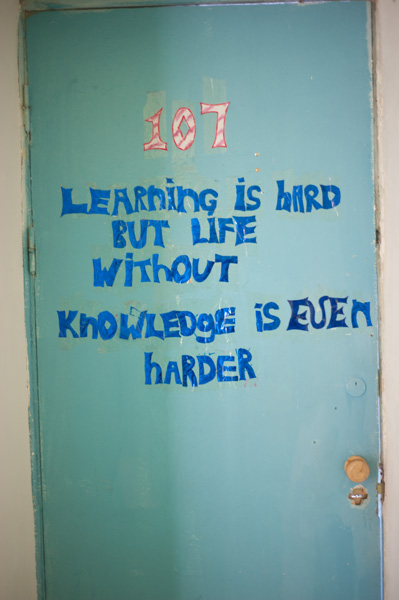 107
LEARning is hARD
BUT LIFE
WiThOUT
KnOWLEDgE is EVEn
hARDER